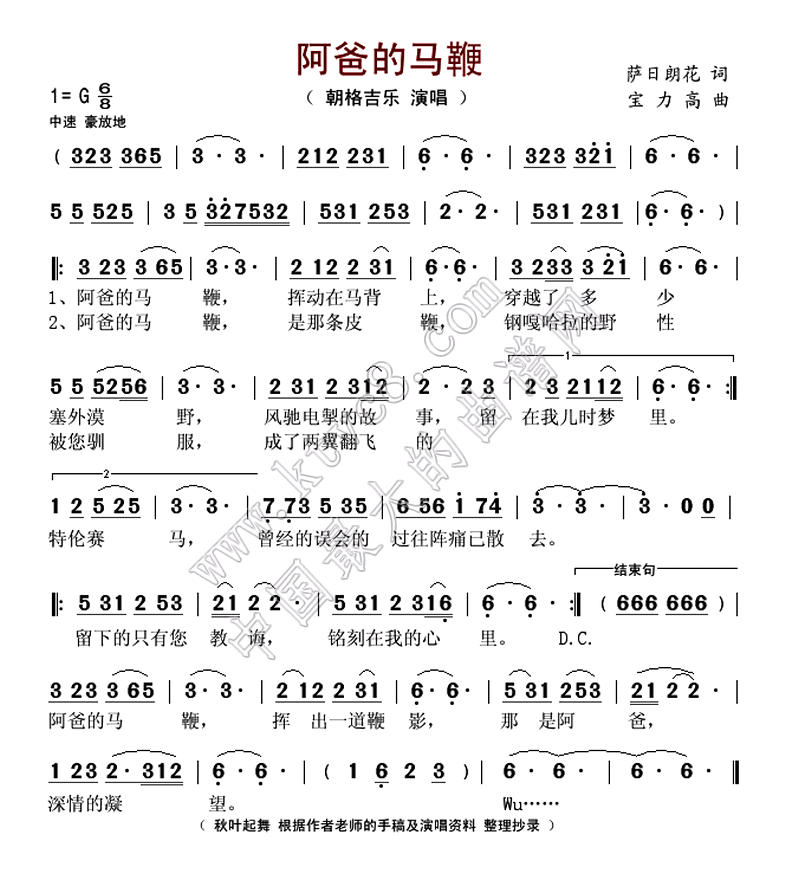 阿爸的马鞭
萨日朗花 词
1= G 6/8
( 朝格吉乐 演唱 )
宝 力 高 曲
中速 豪放地
( 323 365 | 3· 3· | 212 231 | 6· 6· | 323 321 | 6· 6· |
5 5 525 | 3 5 327532 | 531 253 | 2· 2· | 531 231 | 6· 6· )|
‖: 3 23 3 65 | 3· 3· | 2 12 2 31 | 6· 6· | 3 233 3 21 | 6· 6· |
1、阿爸的马 鞭, 挥动在马背 上, 穿越了 多 少
2、阿爸的马 鞭, 是那条皮 鞭, 钢嘎哈拉的野 性
1
5 5 5256 | 3· 3· | 2 31 2 312 | 2· 2 3 | 2 3 2112 | 6· 6· :‖
塞外漠 野, 风驰电掣的故 事, 留 在我儿时梦 里。
被您驯 服, 成了两翼翻飞 的
2
1 2 5 25 | 3· 3· | 7 73 5 35 | 6 56 1 74 | 3· 3· | 3· 0 0 |
特伦赛 马, 曾经的误会的 过往阵痛已散 去。
结束句
‖: 5 31 2 53 | 21 2 2· | 5 31 2 316 | 6· 6· :‖ ( 666 666 ) |
留下的只有您 教 诲, 铭刻在我的心 里。 D.C.
3 23 3 65 | 3· 3· | 2 12 2 31 | 6· 6· | 5 31 2 53 | 21 2 2· |
阿爸的马 鞭, 挥 出一道鞭 影, 那 是阿 爸,
1 23 2· 312 | 6· 6· | ( 1 6 2 3 ) | 6· 6· | 6· 6· ‖
深情的凝 望。 Wu……
( 秋叶起舞 根据作者老师的手稿及演唱资料 整理抄录 )
www.ktvc8.com
中国最大的曲谱网